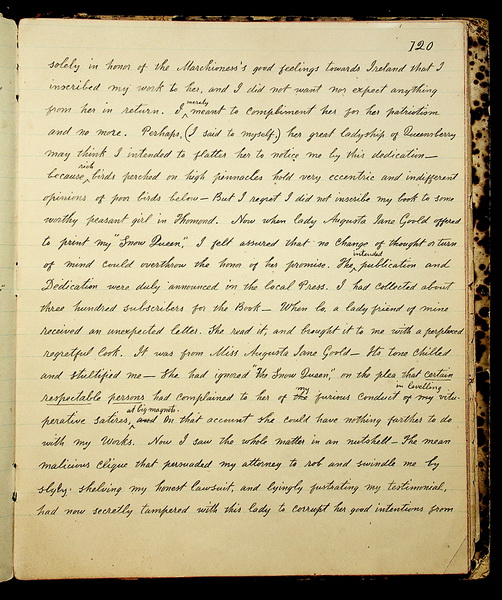 120
solely in honor of the Marchioness's good feelings towards Ireland that I
inscribed my work to her, and I did not want nor expect anything
from her in return. I merely meant to compliment her for her patriotism
and no more. Perhaps, (I said to myself,) her great ladyship of Queensberry
may think I intended to flatter her to notice me by this dedication—
because rich birds perched on high pinnacles hold very eccentric and indifferent
opinions of poor birds below— But I regret I did not inscribe my book to some
worthy peasant girl in Thomond. Now when lady Augusta Jane Goold offered
to print my "Snow Queen," I felt assured that no change of thought or turn
of mind could overthrow the honor of her promise. The intended publication and
Dedication were duly announced in the local Press. I had collected about
three hundred subscribers for the Book— When lo, a lady friend of mine
received an unexpected letter. She read it, and brought it to me with a perplexed
regretful look. It was from Miss Augusta Jane Goold— Its tone chilled
and stultified me— She had ignored "The Snow Queen," on the plea that certain
respectable persons had complained to her of the my furious conduct in levelling of my vitu-
perative satires, at big magnets. and On that account she could have nothing further to do
with my Works. Now I saw the whole matter in an nutshell— The mean
malicious clique that persuaded my attorney to rob and swindle me by
slyly shelving my honest lawsuit, and lyingly frustrating my testimonial,
had now secretly tampered with this lady to corrupt her good intentions from